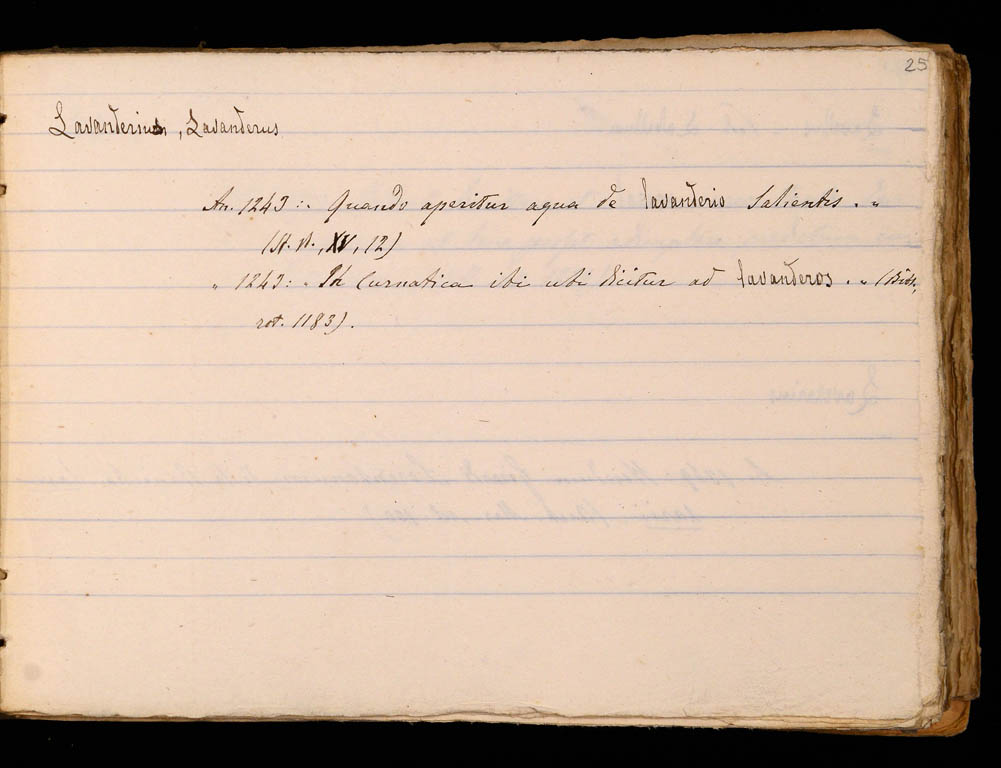 25
Lavanderium, Lavanderus
An. 1243: „ Quando aperitur aqua de lavanderio Salientis. „
(St. A., XV, 12)
„ 1243: „ In Curnatica ibi ubi dicitur ad lavanderos. „ (Bibl.,
rot. 1183).